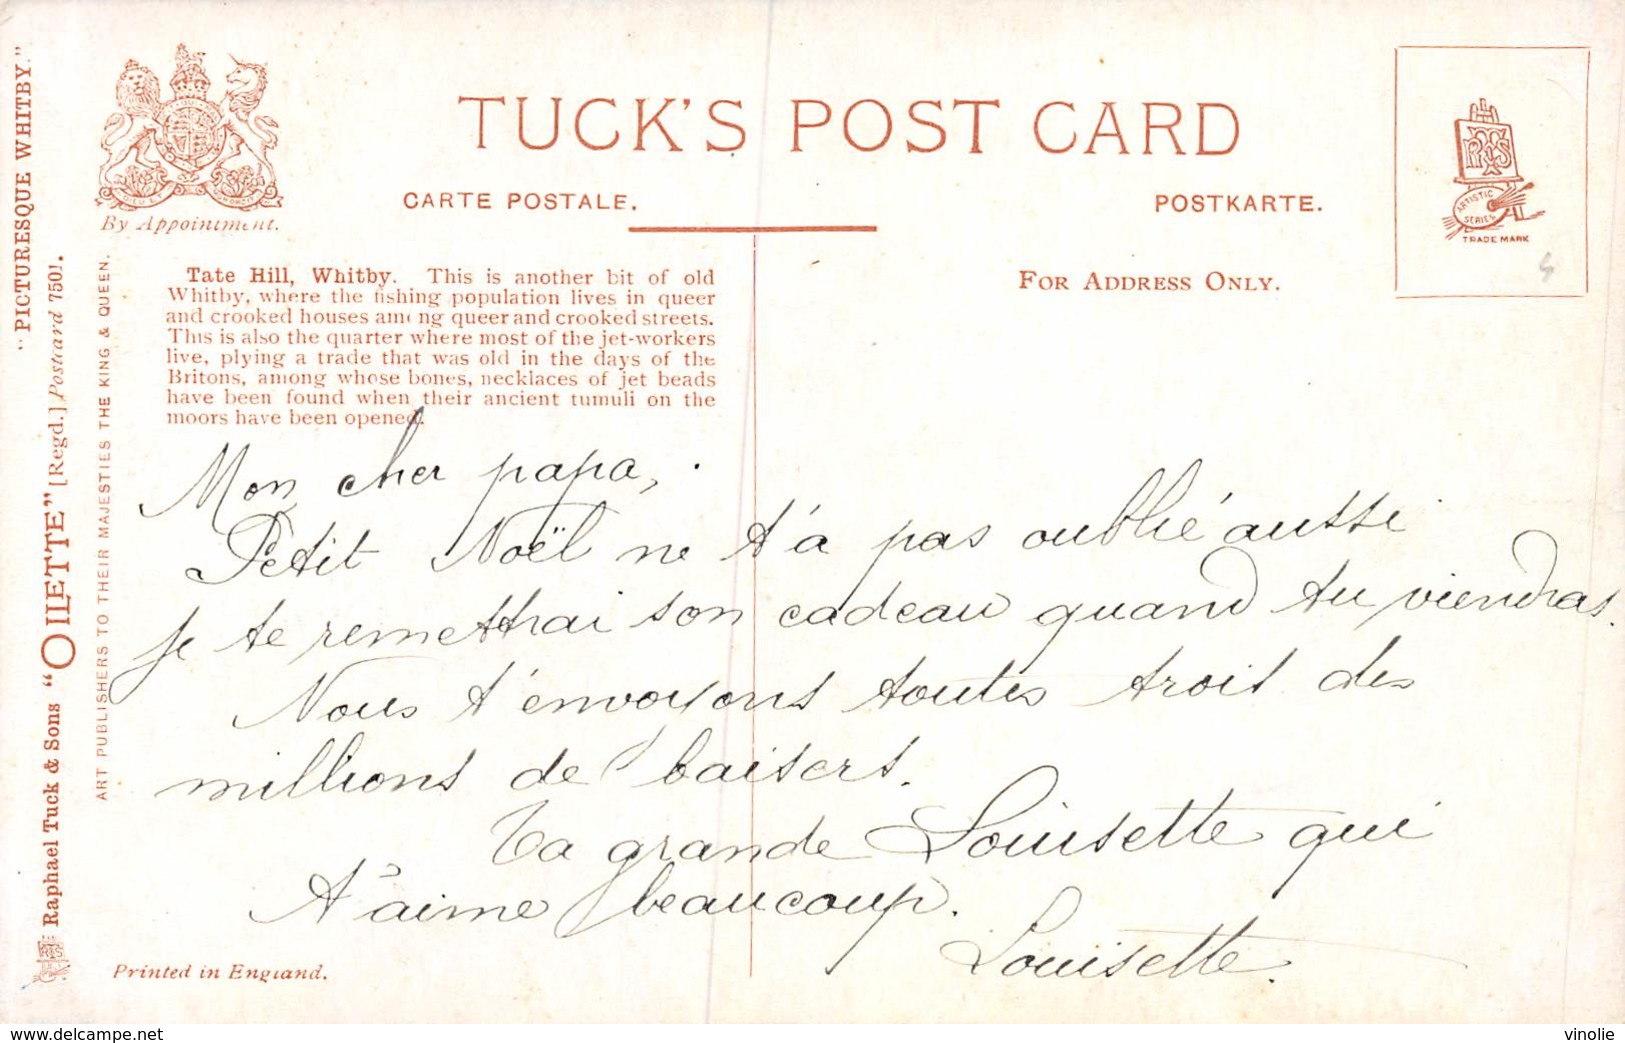 "PICTURESQUE WHITBY."
Raphael Tuck & Sons "OILETTE" [Regd.] Postcard 7501.
ART PUBLISHERS TO THEIR MAJESTIES THE KING & QUEEN.
By Appointment.
TUCK'S POST CARD
CARTE POSTALE.
POSTKARTE.
ARTISTIC
SERIES
TRADE MARK
FOR ADDRESS ONLY.
Tate Hill, Whitby. This is another bit of old
Whitby, where the fishing population lives in queer
and crooked houses among queer and crooked streets.
This is also the quarter where most of the jet-workers
live, plying a trade that was old in the days of the
Britons, among whose bones, necklaces of jet beads
have been found when their ancient tumuli on the
moors have been opened.
Mon cher papa,
Petit Noël ne t'a pas oublié aussi
je te remettrai son cadeau quand tu viendras.
Nous t'envoyons toutes trois des
millions de baisers.
Ta grande Louisette qui
t'aime beaucoup.
Louisette.
Printed in England.
https://www.delcampe.net
vinolie